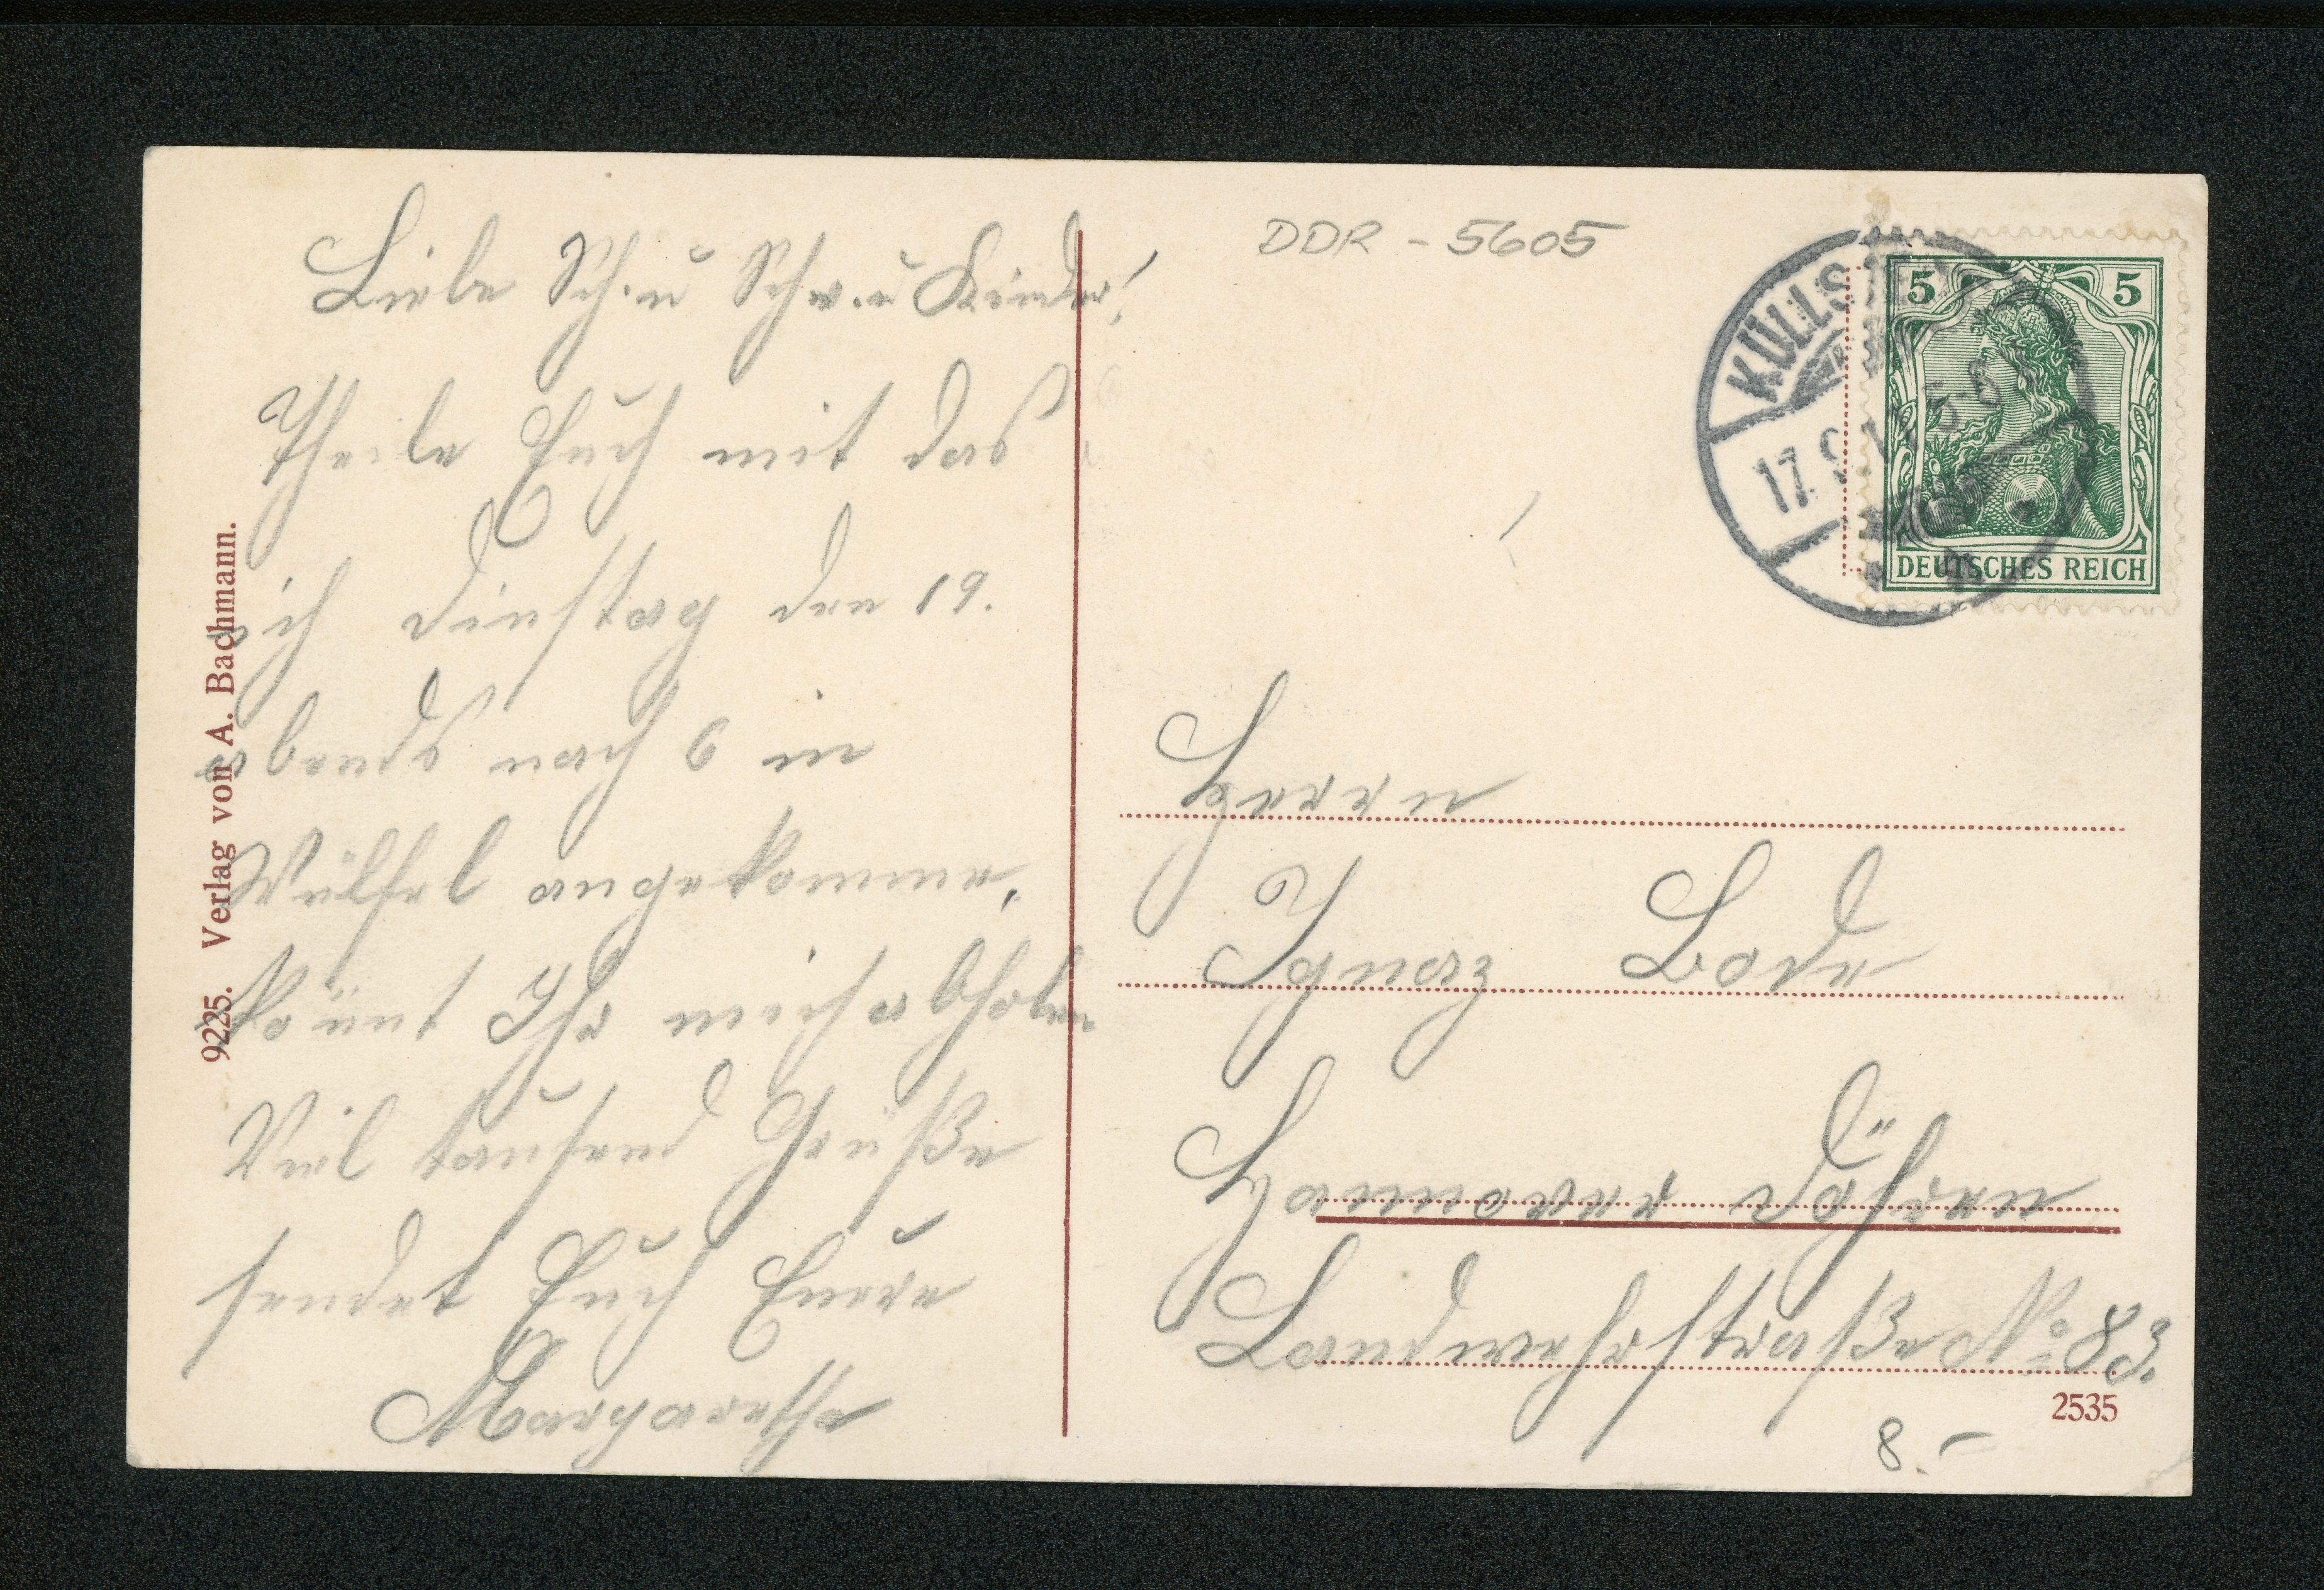 Liebe Sch. u Schw. u Kinder!
Theile Euch mit das
ich Dinstag den 19.
abends nach 6 in
Wülfel angekomme,
könnt Ihr mich abholen
Viel tausend Grüße
sendet Euch Euere
Margarethe
9225. Verlag von A. Bachmann.
DDR - 5605
5 5
DEUTSCHES REICH
17.9. 5-6
Herrn
Ignaz Bode
Hannover Döhren
Landwehrstraße No 83.
2535
8.-